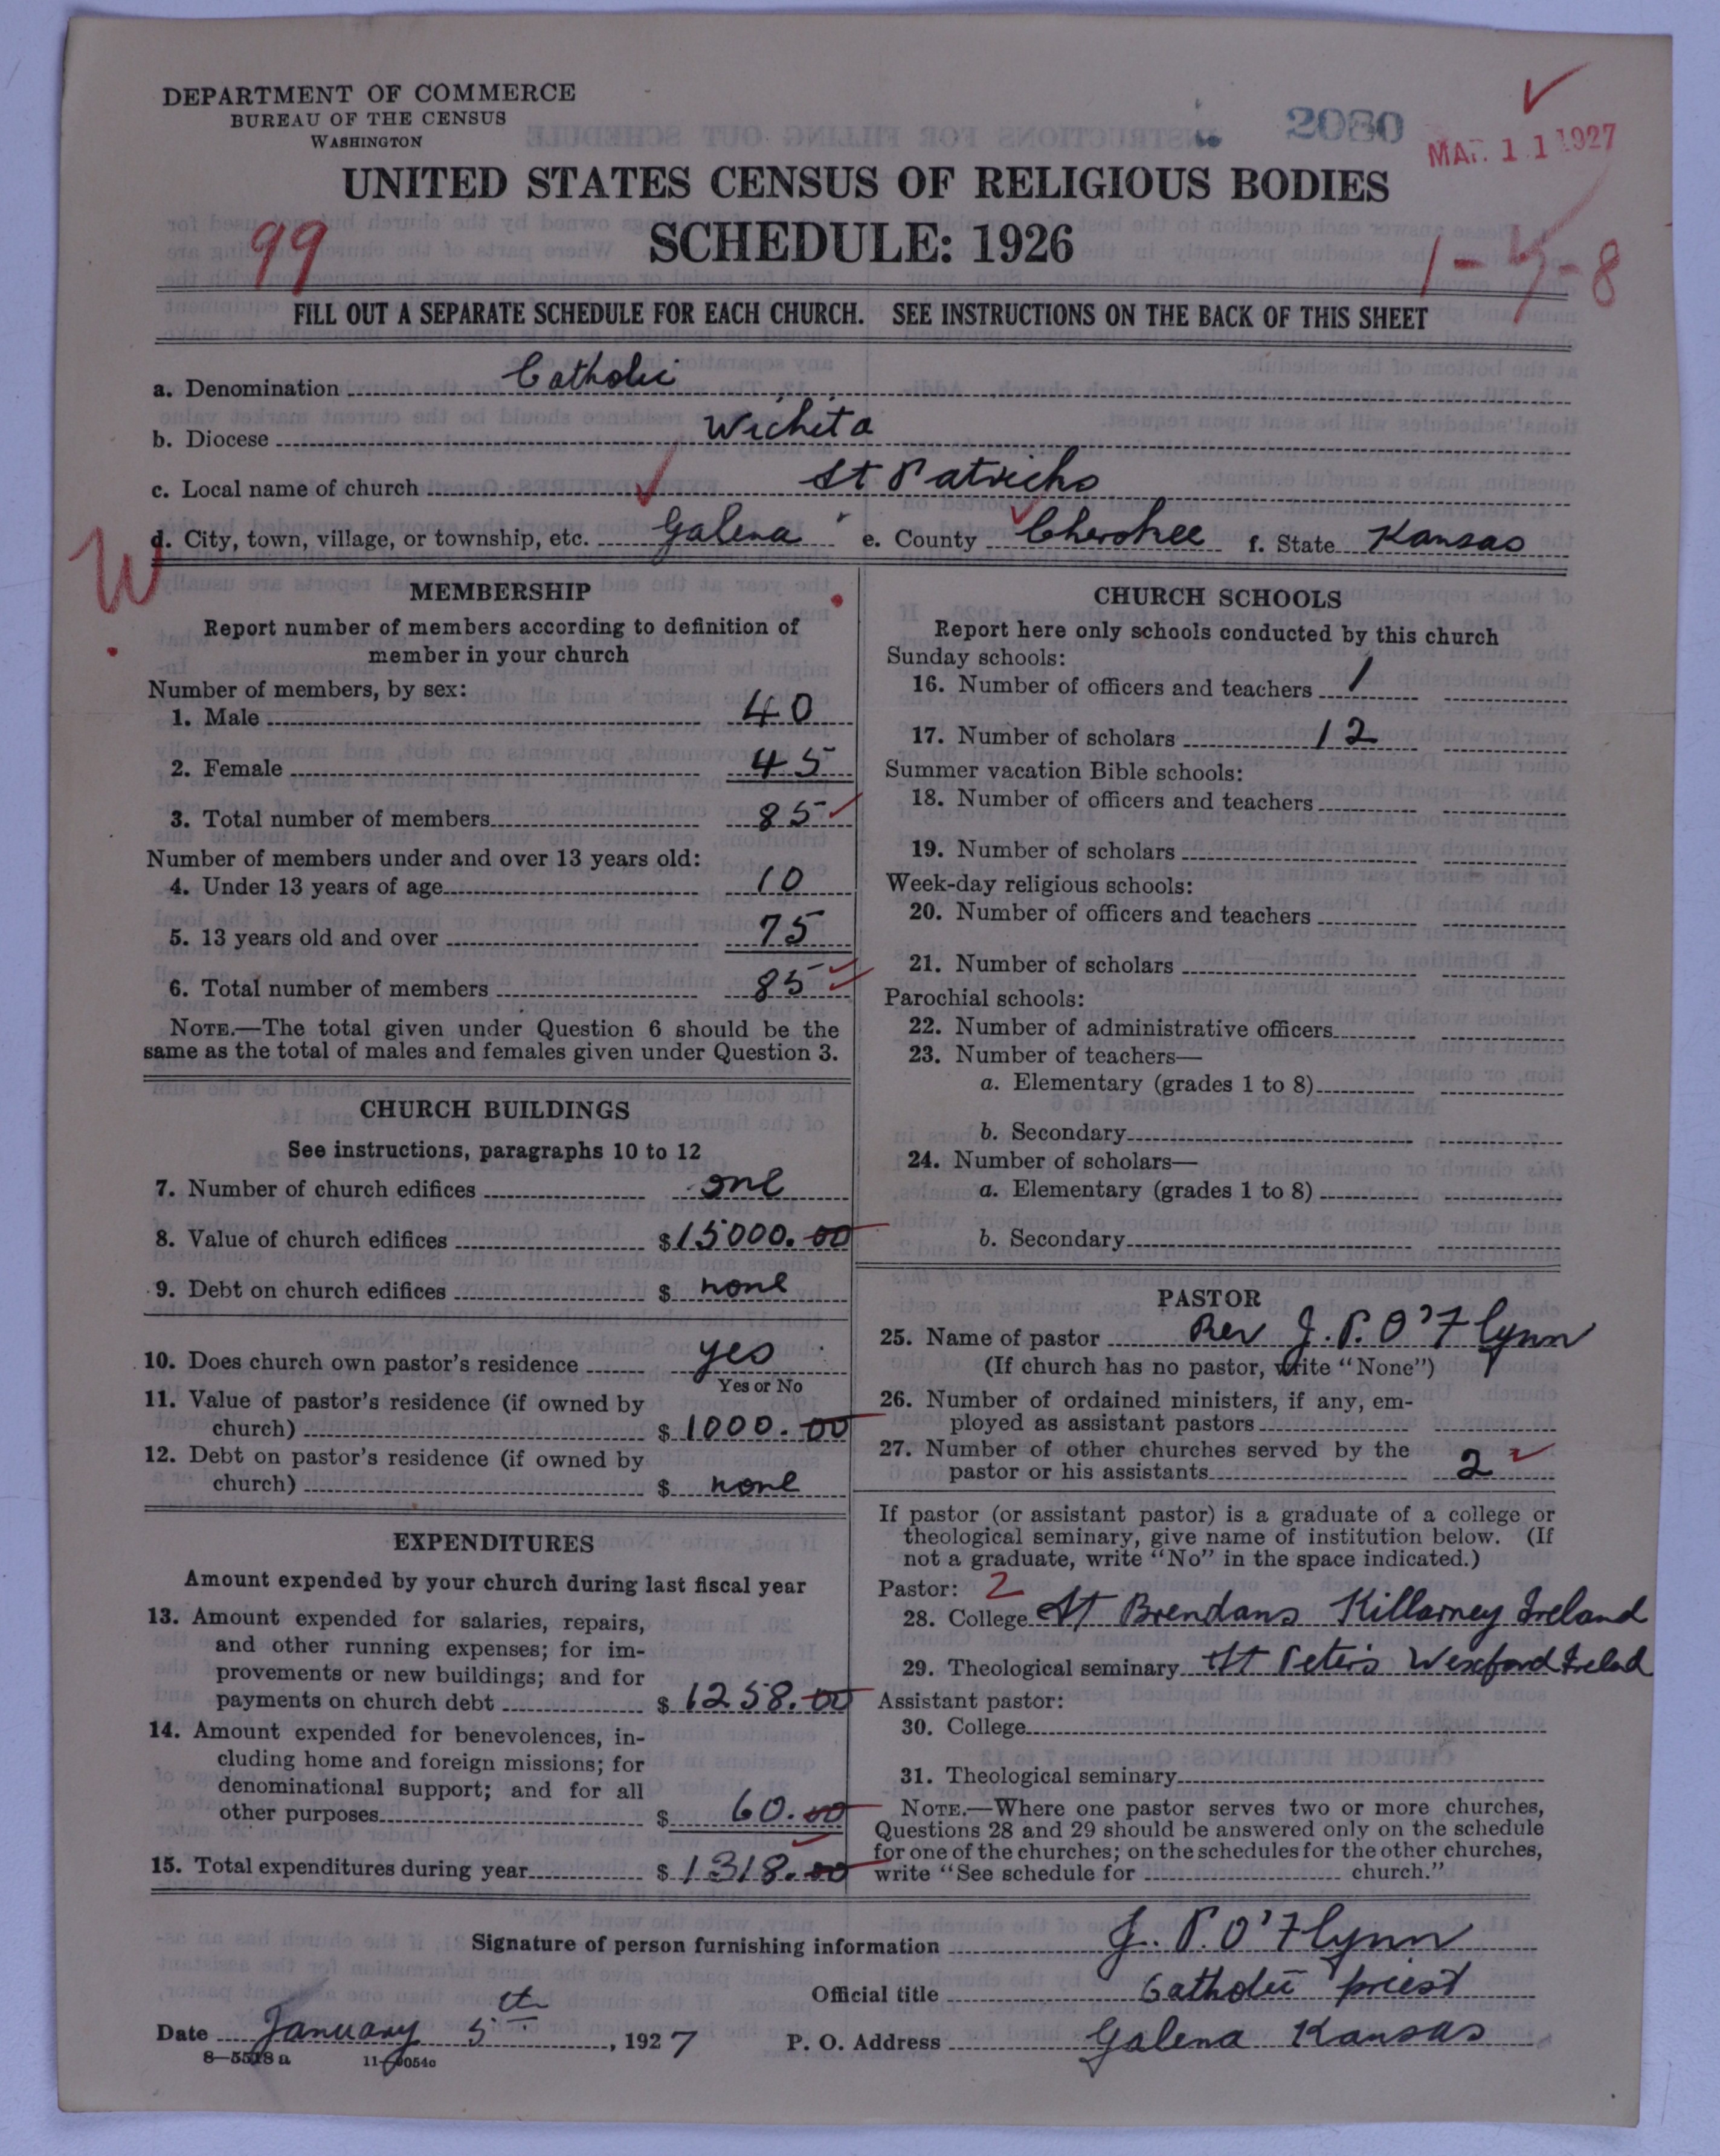 DEPARTMENT OF COMMERCE
BUREAU OF THE CENSUS
WASHINGTON
2080
MAR. 11 1927
UNITED STATES CENSUS OF RELIGIOUS BODIES
SCHEDULE: 1926
99
1-4-8
FILL OUT A SEPARATE SCHEDULE FOR EACH CHURCH. SEE INSTRUCTIONS ON THE BACK OF THIS SHEET
a. Denomination Catholic
b. Diocese Wichita
c. Local name of church St Patricks
d. City, town, village, or township, etc. Galena e. County Cherokee f. State Kansas
W
MEMBERSHIP
Report number of members according to definition of
member in your church
Number of members, by sex:
1. Male 40
2. Female 45
3. Total number of members 85
Number of members under and over 13 years old:
4. Under 13 years of age 10
5. 13 years old and over 75
6. Total number of members 85
NOTE.—The total given under Question 6 should be the
same as the total of males and females given under Question 3.
CHURCH BUILDINGS
See instructions, paragraphs 10 to 12
7. Number of church edifices one
8. Value of church edifices $15000.00
9. Debt on church edifices $ none
10. Does church own pastor's residence yes
Yes or No
11. Value of pastor's residence (if owned by
church) $1000.00
12. Debt on pastor's residence (if owned by
church) $ none
EXPENDITURES
Amount expended by your church during last fiscal year
13. Amount expended for salaries, repairs,
and other running expenses; for im-
provements or new buildings; and for
payments on church debt $1258.00
14. Amount expended for benevolences, in-
cluding home and foreign missions; for
denominational support; and for all
other purposes $ 60.00
15. Total expenditures during year $1318.00
CHURCH SCHOOLS
Report here only schools conducted by this church
Sunday schools:
16. Number of officers and teachers 1
17. Number of scholars 12
Summer vacation Bible schools:
18. Number of officers and teachers
19. Number of scholars
Week-day religious schools:
20. Number of officers and teachers
21. Number of scholars
Parochial schools:
22. Number of administrative officers
23. Number of teachers—
a. Elementary (grades 1 to 8)
b. Secondary
24. Number of scholars—
a. Elementary (grades 1 to 8)
b. Secondary
PASTOR
25. Name of pastor Rev J. P. O'Flynn
(If church has no pastor, write "None")
26. Number of ordained ministers, if any, em-
ployed as assistant pastors
27. Number of other churches served by the
pastor or his assistants 2
If pastor (or assistant pastor) is a graduate of a college or
theological seminary, give name of institution below. (If
not a graduate, write "No" in the space indicated.)
Pastor: 2
28. College St Brendans Killarney Ireland
29. Theological seminary St Peters Wexford Irelad
Assistant pastor:
30. College
31. Theological seminary
NOTE.—Where one pastor serves two or more churches,
Questions 28 and 29 should be answered only on the schedule
for one of the churches; on the schedules for the other churches,
write "See schedule for church."
Signature of person furnishing information J. P. O'Flynn
Official title Catholic priest
Date January 5th, 1927 P. O. Address Galena Kansas
8—5518 a 11-9054c